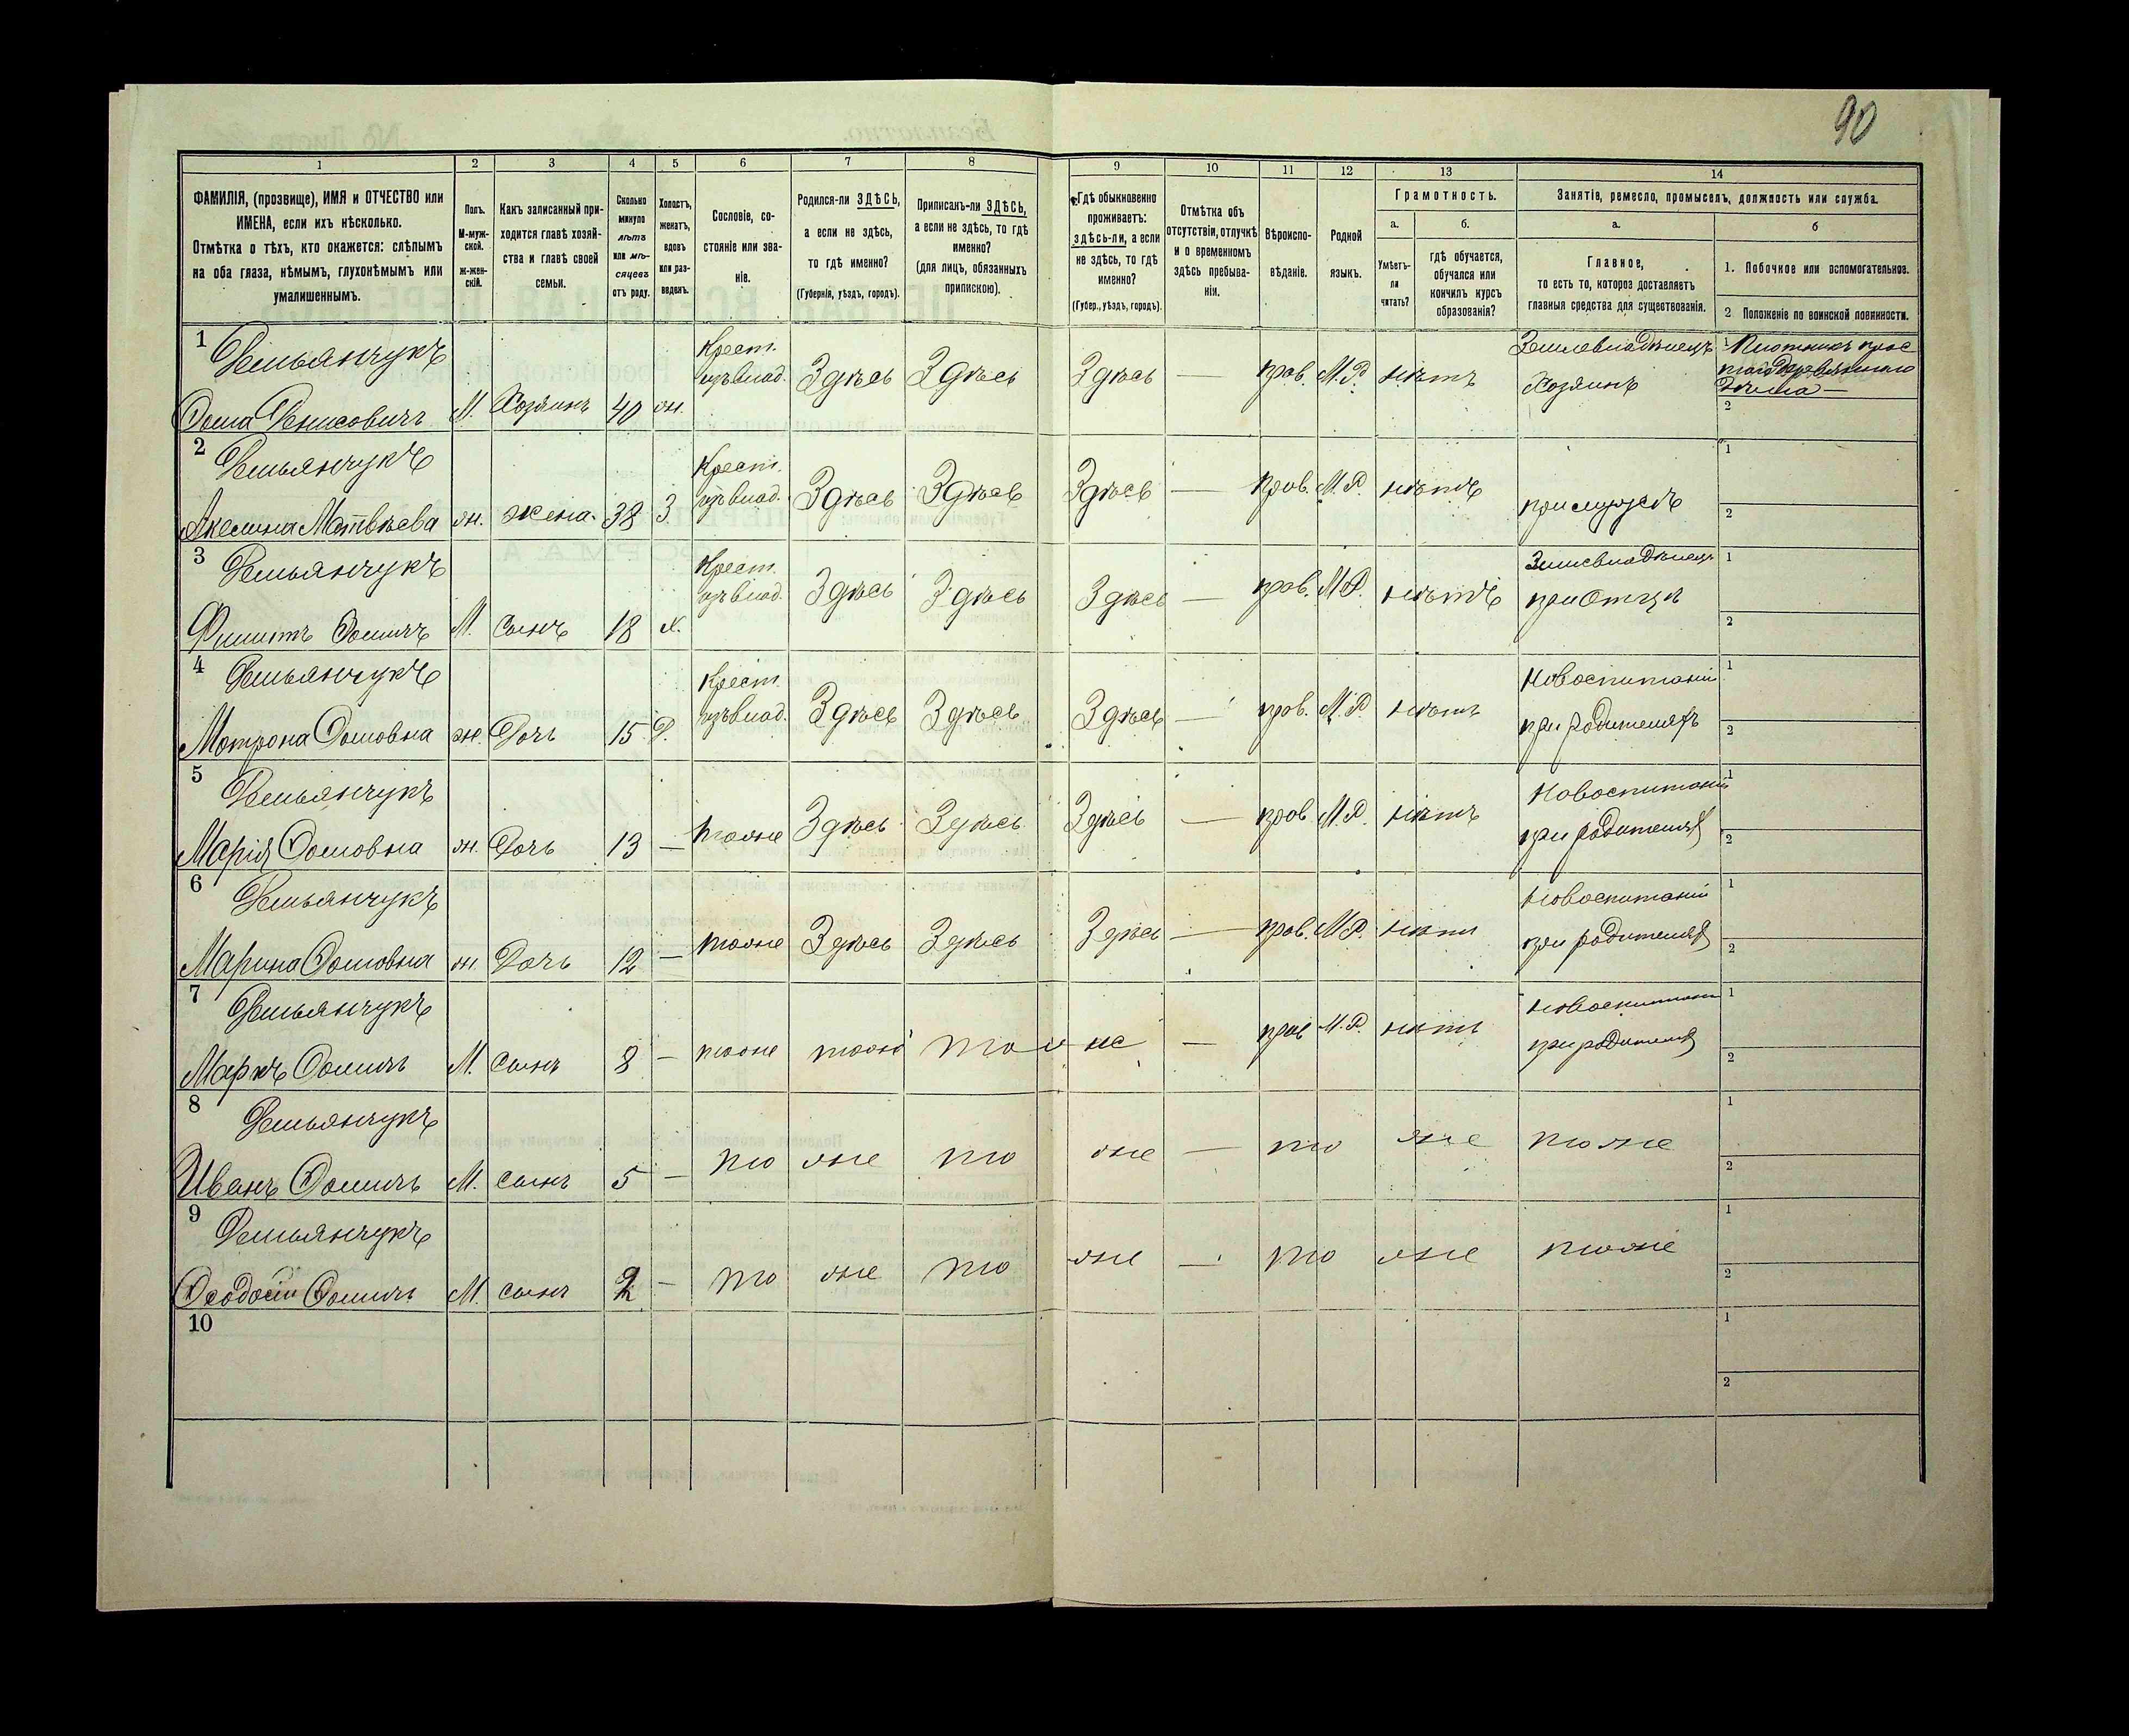 90
1
2
3
4
5
6
7
8
9
10
11
12
13
14
ФАМИЛІЯ, (прозвище), ИМЯ и ОТЧЕСТВО или
ИМЕНА, если ихъ нѣсколько.
Отмѣтка о тѣхъ, кто окажется: слѣпымъ
на оба глаза, нѣмымъ, глухонѣмымъ или
умалишеннымъ.
Полъ.
М-муж-
ской.
ж-жен-
скій.
Какъ записанный при-
ходится главѣ хозяй-
ства и главѣ своей
семьи.
Сколько
минуло
лѣтъ
или мѣ-
сяцевъ
отъ роду.
Холостъ,
женатъ,
вдовъ
или раз-
веденъ.
Сословіе, со-
стояніе или зва-
ніе.
Родился-ли ЗДѢСЬ,
а если не здѣсь,
то гдѣ именно?
(Губернія, уѣздъ, городъ).
Приписанъ-ли ЗДѢСЬ,
а если не здѣсь, то гдѣ
именно?
(для лицъ, обязанныхъ
припискою).
Гдѣ обыкновенно
проживаетъ:
здѣсь-ли, а если
не здѣсь, то гдѣ
именно?
(Губер., уѣздъ, городъ).
Отмѣтка объ
отсутствіи, отлучкѣ
и о временномъ
здѣсь пребыва-
ніи.
Вѣроиспо-
вѣданіе.
Родной
языкъ.
Грамотность.
а.
Умѣетъ-
ли
читать?
б.
гдѣ обучается,
обучался или
кончилъ курсъ
образованія?
Занятіе, ремесло, промыселъ, должность или служба.
а.
Главное,
то есть то, которое доставляетъ
главныя средства для существованія.
б
1. Побочное или вспомогательное.
2 Положеніе по воинской повинности.
1 Демьянчукъ Крест. Землевладѣлецъ 1 Плотникъ прос
изъ влад. Здѣсь Здѣсь Здѣсь — прав. М.Р. нѣтъ Хозяинъ
Фома Денисовичъ М. Хозяинъ 40 ж. 2
2 Демьянчукъ Крест. 1
изъ влад. Здѣсь Здѣсь Здѣсь — прав. М.Р. нѣтъ
Акелина Матвѣева ж. жена 38 З. 2
3 Демьянчукъ Крест. Землевладѣлецъ 1
изъ влад. Здѣсь Здѣсь Здѣсь — прав. М.Р. нѣтъ при Отцѣ
Филиппъ Фомичъ М. сынъ 18 х. 2
4 Демьянчукъ Крест. На воспитаніи 1
изъ влад. Здѣсь Здѣсь Здѣсь — прав. М.Р. нѣтъ при родителяхъ
Мотрона Фомовна ж. Дочь 15 Д. 2
5 Демьянчукъ На воспитаніи 1
тоже Здѣсь Здѣсь Здѣсь — прав. М.Р. нѣтъ при родителях
Марія Фомовна ж. Дочь 13 — 2
6 Демьянчукъ На воспитаніи 1
тоже Здѣсь Здѣсь Здѣсь — прав. М.Р. нѣтъ при родителях
Марина Фомовна ж. Дочь 12 — 2
7 Демьянчукъ На воспитаніи 1
тоже тоже то же — прав М.Р. нѣтъ при родителях
Маркъ Фомичъ М. сынъ 8 — 2
8 Демьянчукъ 1
то же то же — то же тоже
Иванъ Фомичъ М. сынъ 5 — 2
9 Демьянчукъ 1
то же то же — то же тоже
Феодосій Фомичъ М. сынъ 2 — 2
10 1
2